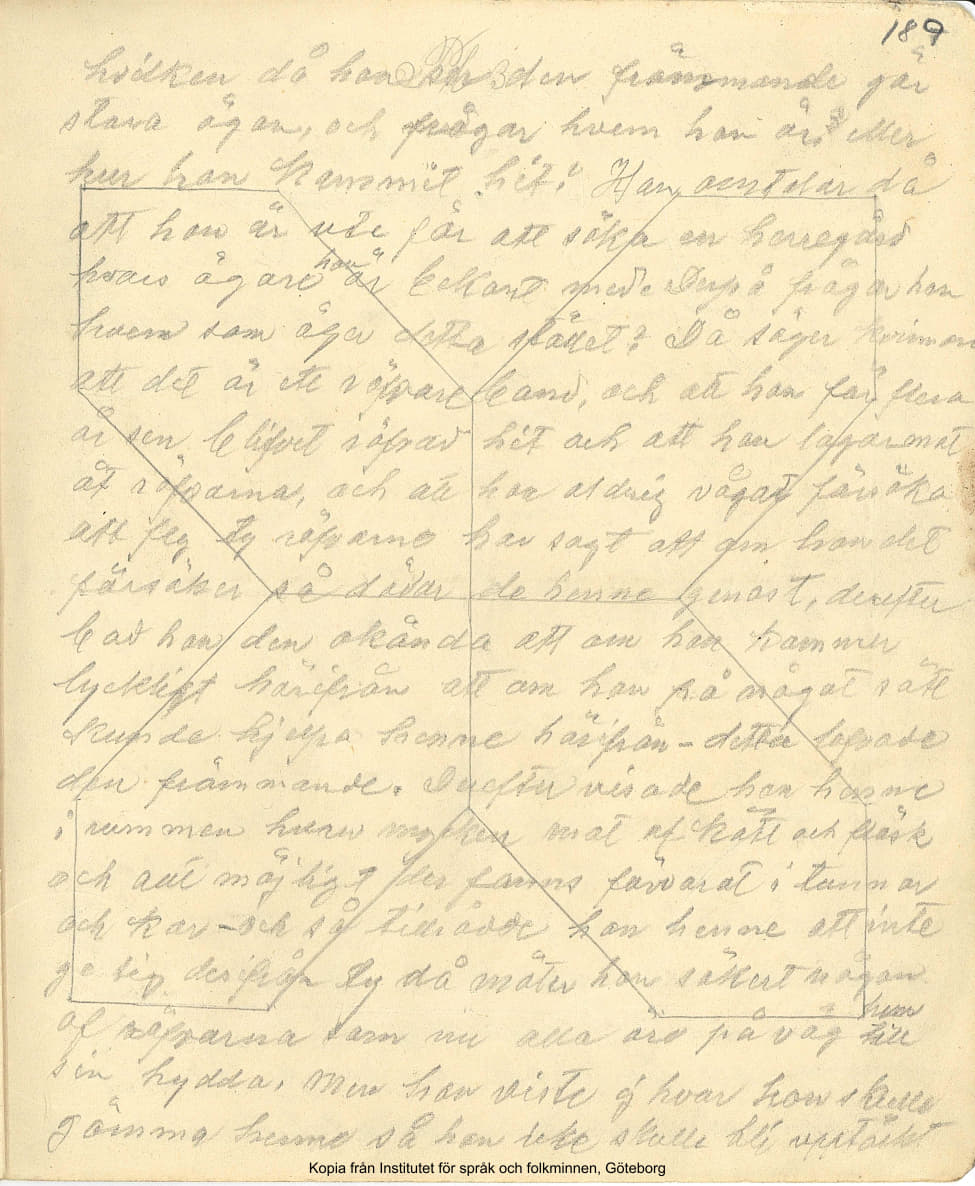 189
hvilken då hon ser den främmande gör
stora ögon, och frågar hvem han är? eller
hur han kammit hit? Han omtalar då
att han är ute för att söka en herregård
hvars ägare han är bekant med. Derpå frågar han
hvem som äger detta stället? Då säger kvinnan
att det är ett röfvareband, och att hon för flera
år sen blifvit röfvad hit och att hon lagar mat
åt röfvarna, och att hon aldrig vågat försöka
att fly ty röfvarne har sagt att om hon det
försöker så dödar de henne genast, derefter
bad hon den okända att om han kommer
lyckligt härifrån att om han på något sätt
kunde hjelpa henne härifrån - detta lofvade
den främmande. Derefter visade hon honom
i rummen huru mycken mat af kött och fläsk
och allt möjligt der fanns förvarat i tunnor
och kar - och så tillrådde hon att inte
ge sig derifrån ty då möter han säkert någon
af röfvarna som nu alla äro på väg hem till
sin hydda. Men hon viste ej hvar hon skulle
gömma så han icke skulle bli upptäckt
Kopia från Institutet för språk och folkminnen, Göteborg